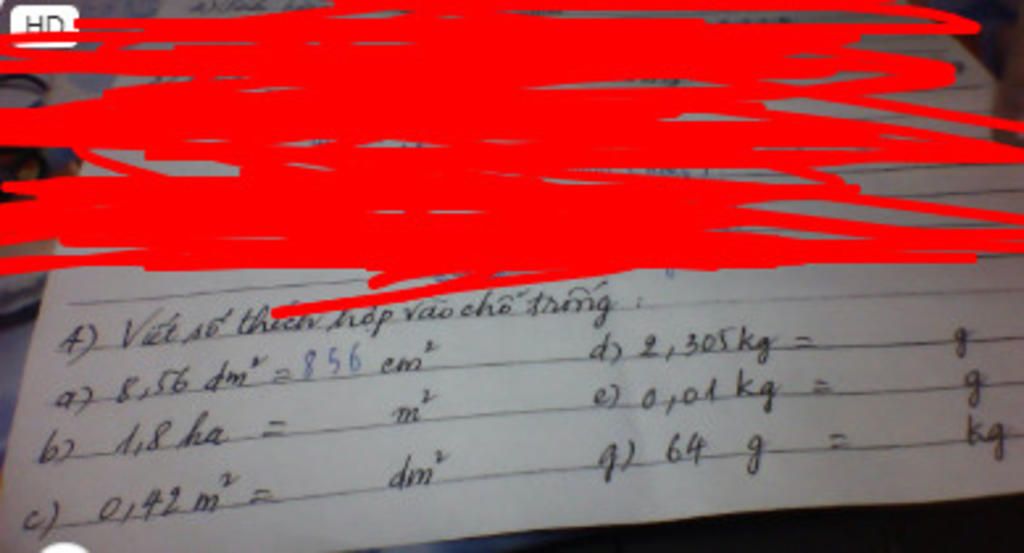 HD
4) Viết số thích hợp vào chỗ trống :
a) 8,56 dm² = 856 cm²
b) 1,8 ha = m²
c) 0,42 m² = dm²
d) 2,305 kg = g
e) 0,01 kg = g
g) 64 g = kg